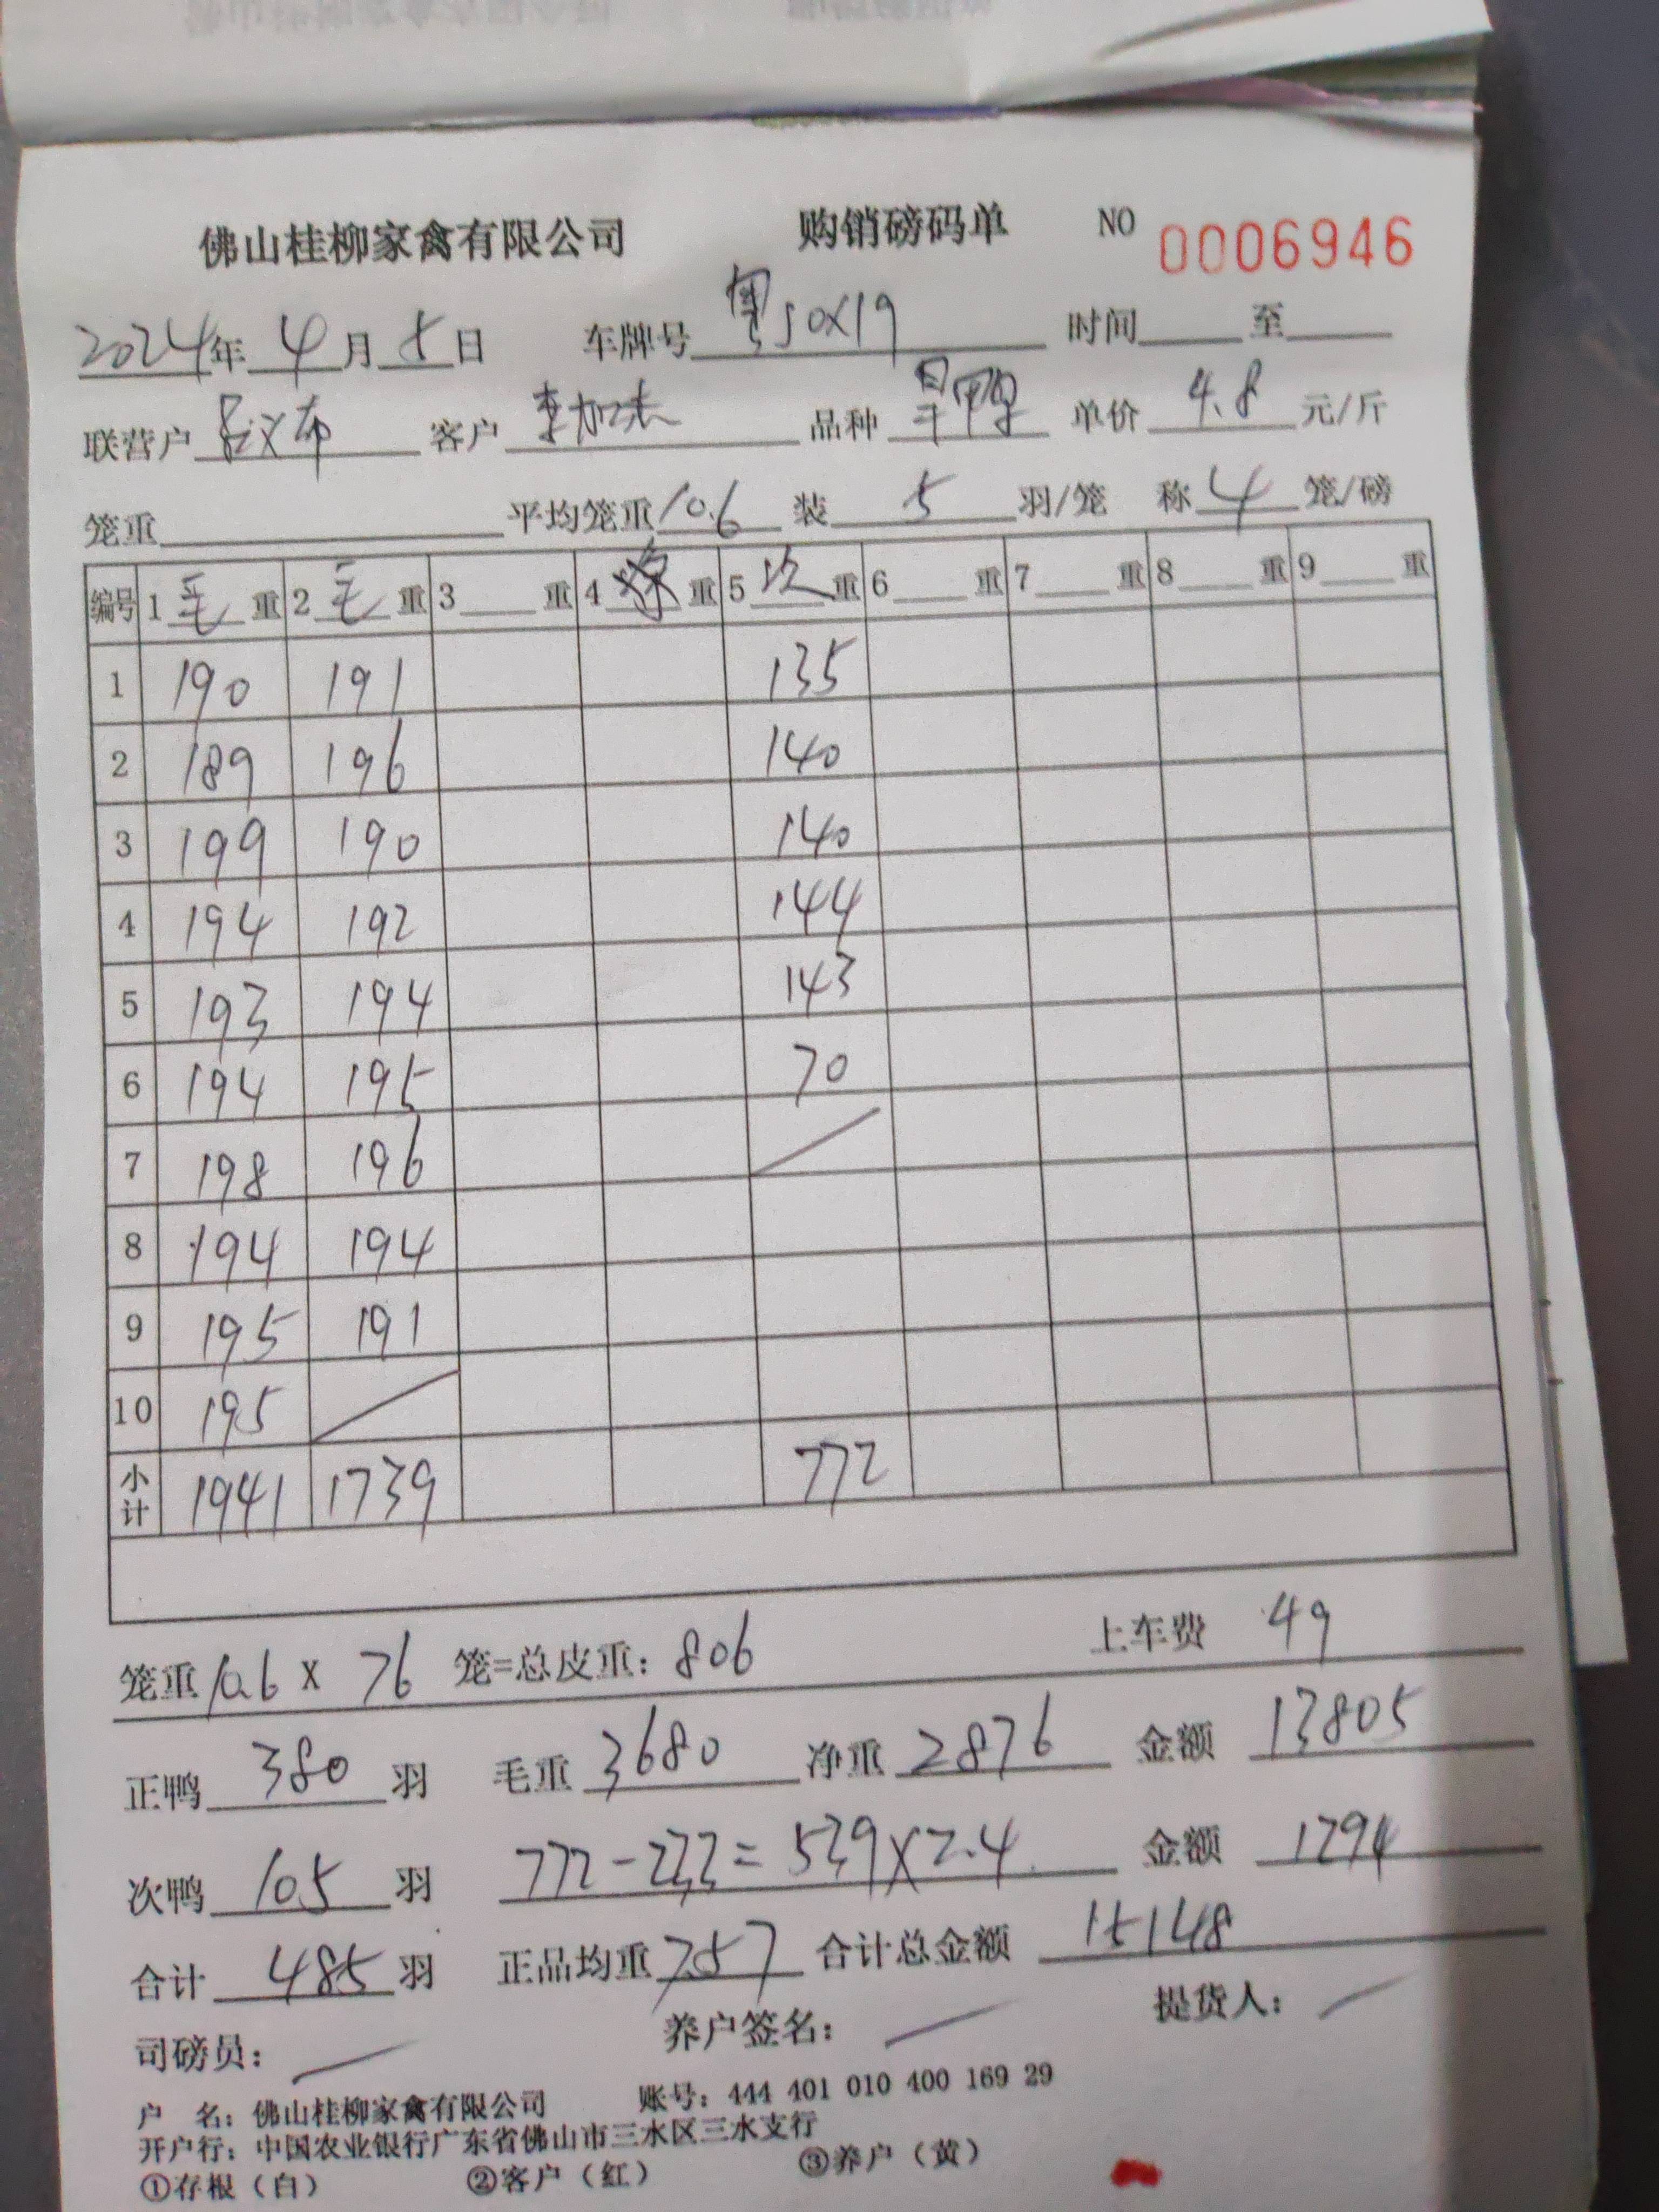 佛山桂柳家禽有限公司 购销磅码单 NO 0006946
2024年 4月 5日 车牌号 粤J0X19 时间 至
联营户 客户 李加杰 品种 单价 4.8 元/斤
笼重 平均笼重 10.6 装 5 羽/笼 称 4 笼/磅
编号 1 毛 重 2 毛 重 3 重 4 重 5 次 重 6 重 7 重 8 重 9 重
1 190 191 135
2 189 196 140
3 199 190 140
4 194 192 144
5 193 194 143
6 194 195 70
7 198 196
8 194 194
9 195 191
10 195
小计 1941 1739 772
笼重 10.6 x 76 笼=总皮重: 806 上车费 49
正鸭 380 羽 毛重 3680 净重 2876 金额 13805
次鸭 105 羽 772-233=539X2.4 金额 1294
合计 485 羽 正品均重 7.57 合计总金额 15148
司磅员: 养户签名: 提货人:
户 名: 佛山桂柳家禽有限公司 账号: 444 401 010 400 169 29
开户行: 中国农业银行广东省佛山市三水区三水支行
①存根（白） ②客户（红） ③养户（黄）